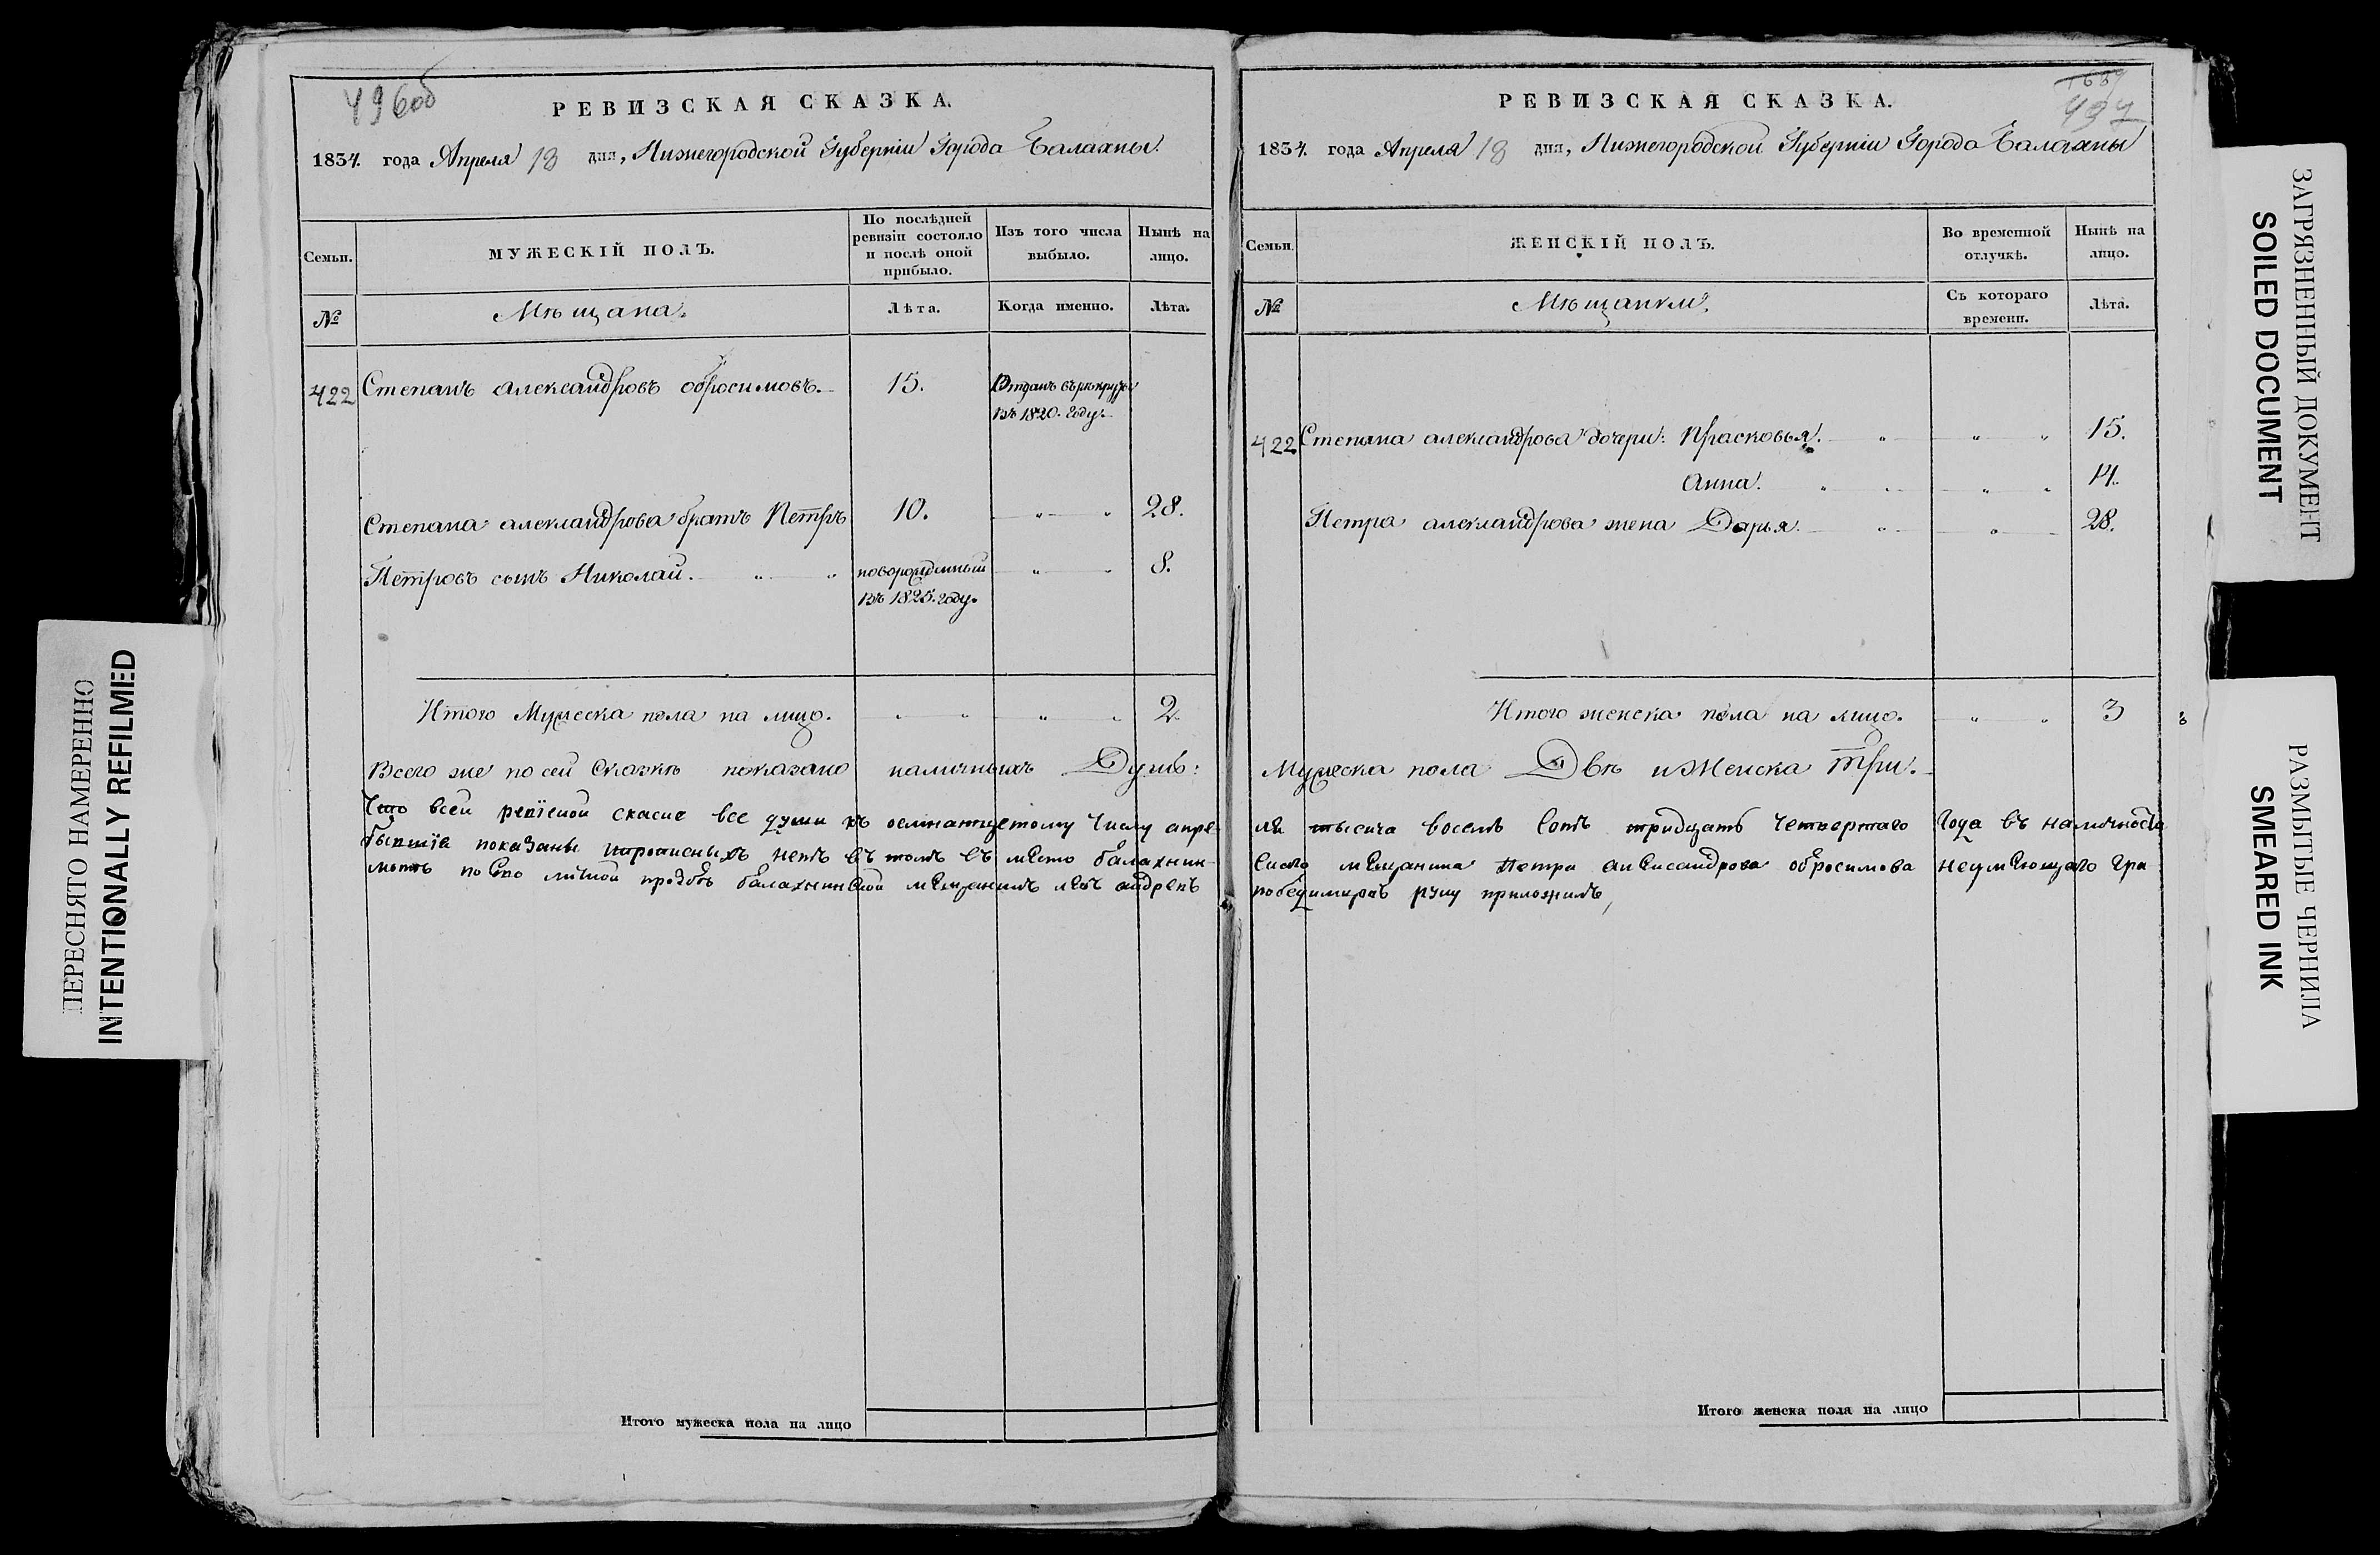 496об
РЕВИЗСКАЯ СКАЗКА.
1834. года Апреля 18 дня, Нижегородской Губерніи Города Балахны.
Семьи.
МУЖЕСКІЙ ПОЛЪ.
По послѣдней ревизіи состояло и послѣ оной прибыло.
Изъ того числа выбыло.
Нынѣ на лицо.
№
Мѣщана.
Лѣта.
Когда именно.
Лѣта.
422 Степанъ александровъ обросимовъ. 15. Отданъ въ рекруты
въ 1820. году.
Степана александрова братъ Петръ 10. 28.
Петровъ сынъ Николай. новорожденный 8.
въ 1825. году.
Итого Мужеска пола на лицо. 2.
Всего же по сей Сказкѣ показано наличныхъ Душъ:
Что всей ревiской скаске все души къ осмнатцетому числу апре-
бывшiе показаны прописныхъ нетъ въ томъ въ место балахнин-
мотъ по Его личной прозбѣ балахнинской мещанинъ андреяъ
РЕВИЗСКАЯ СКАЗКА.
497
1834. года Апреля 18 дня, Нижегородской Губерніи Города Балахны
Семьи.
ЖЕНСКІЙ ПОЛЪ.
Во временной отлучкѣ.
Нынѣ на лицо.
№
Мѣщанки.
Съ котораго времени.
Лѣта.
422 Степана александрова дочери: Прасковья. 15.
Анна. 14.
Петра александрова жена Дарья. 28.
Итого женска пола на лицо. 3
Мужеска пола Двѣ и Женска три.
ля тысеча восемь сотъ тридцать четвертаго года въ наличности
скаго мещанина Петра александрова обросимова неумеющаго гра
победимировъ руку приложилъ,
Итого мужеска пола на лицо
Итого женска пола на лицо
ПЕРЕСНЯТО НАМЕРЕННО
INTENTIONALLY REFILMED
ЗАГРЯЗНЕННЫЙ ДОКУМЕНТ
SOILED DOCUMENT
РАЗМЫТЫЕ ЧЕРНИЛА
SMEARED INK